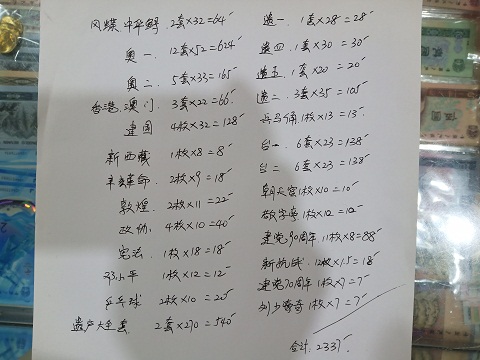 风蝶 中华鲟 2套×32=64
奥一 12套×52=624
奥二 5套×33=165
香港.澳门 3套×22=66
建国 4枚×32=128
新西藏 1枚×8=8
辛亥革命 2枚×9=18
敦煌 2枚×11=22
政协 4枚×10=40
宪法 1枚×18=18
邓小平 1枚×12=12
乒乓球 2枚×10=20
遗产大全套 2套×270=540
遗一 1套×28=28
遗四 1套×30=30
遗五 1套×20=20
遗二 3套×35=105
兵马俑 1枚×13=13
台一 6套×23=138
台二 6套×23=138
朝天宫 1枚×10=10
敬字亭 1枚×12=12
建党90周年 11枚×8=88
新抗战 12枚×1.5=18
建党70周年 1枚×7=7
刘少奇 1枚×7=7
合计: 2337